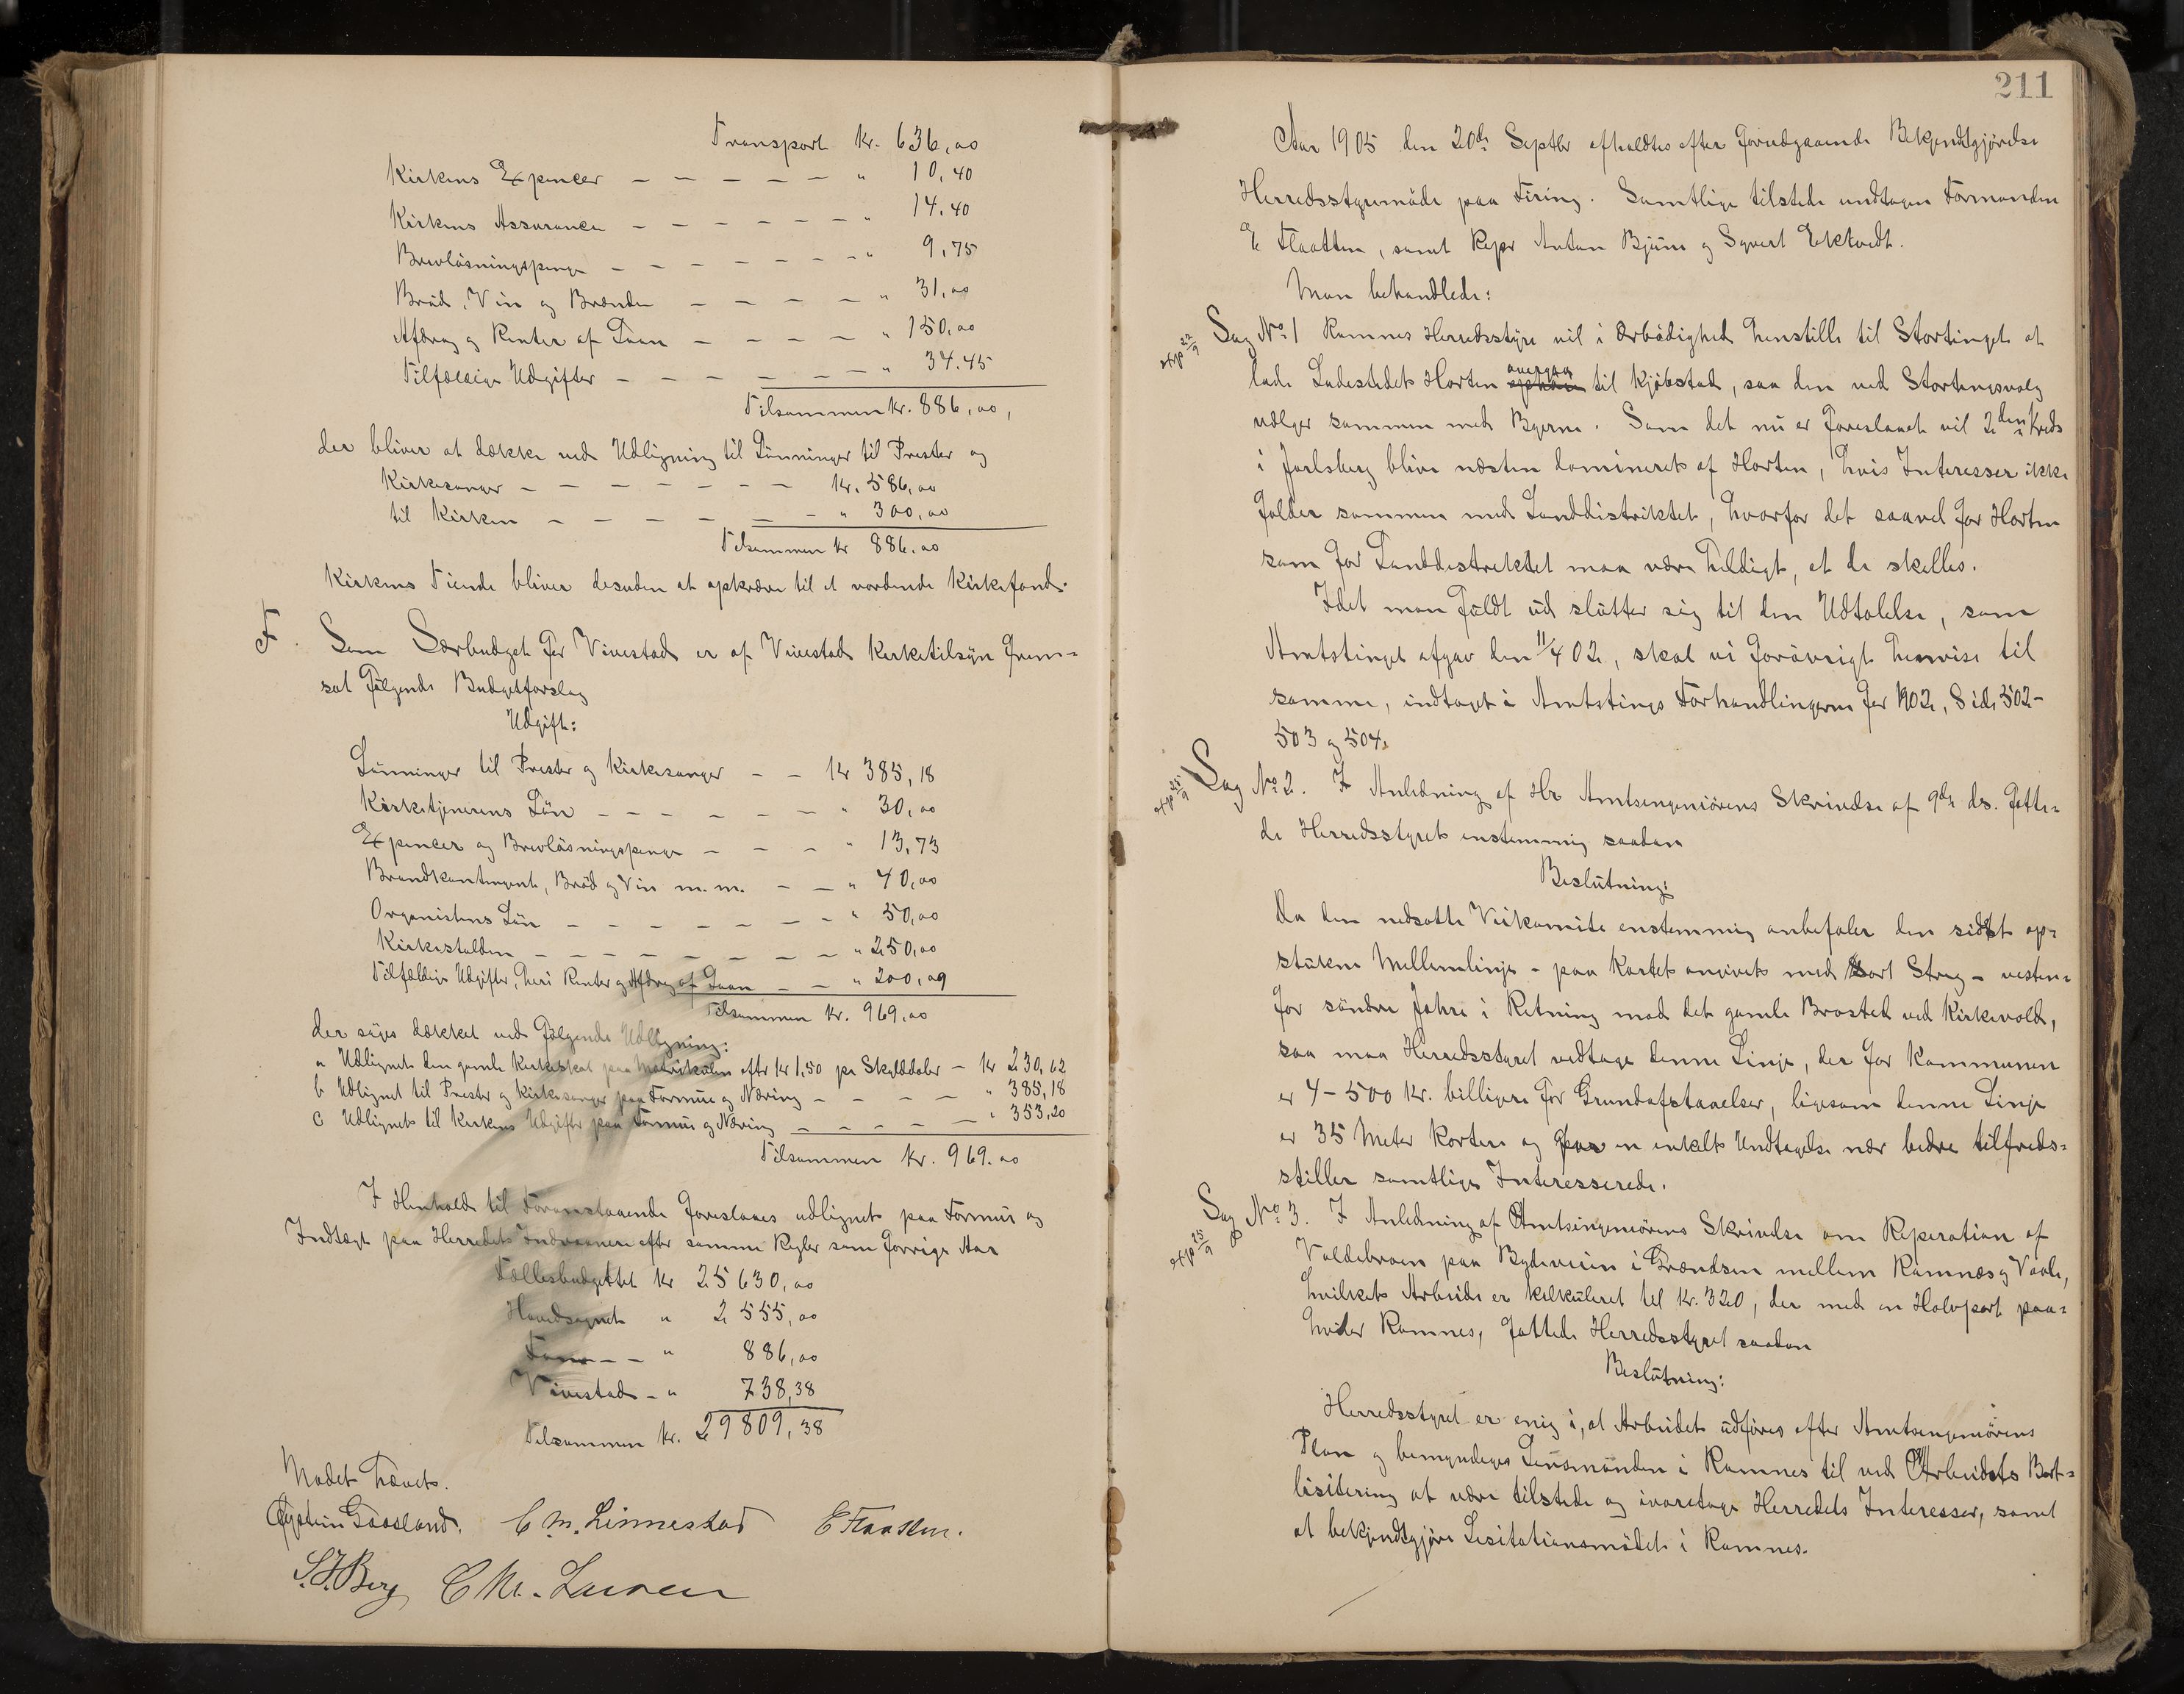 Transport Kr. 636,00
Kirkens Expencer — — — — — " 10,40
Kirkens Assurance — — — — — " 14.40
Brevløsningspenge — — — — — — " 9,75
Brød, Vin og Brænde — — — — " 31,00
Afdrag og Renter af Laan — — — — " 150,00
Tilfældige Udgifter — — — — — " 34.45
Tilsammen Kr. 886,00,
der bliver at dække ved Udligning til Lønninger til Prester og
Kirkesanger — — — — — — — Kr. 586,00
til Kirken — — — — — — " 300,00
Tilsammen Kr 886.00
Kirkens Tiende bliver desuden at opkræve til et vordende Kirkefond.
F. Som Særbudget for Vivestad er af Vivestad Kirketilsyn frem=
sat følgende Budgetforslag
Udgift:
Lønninger til Prester og Kirkesanger — — Kr 385,18
Kirketjenerens Løn — — — — — — " 30,00
Expencer og Brevløsningspenge — — — " 13,73
Brandkontingent, Brød og Vin m.m. — — " 40,00
Organistens Løn — — — — — — " 50,00
Kirkestolden — — — — — — — " 250,00
Tilfældige Udgifter, heri Renter og Afdrag af Laan — — " 200,09
Tilsammen Kr. 969.00
der søges dækket ved følgende Udligning:
a Udlignet den gamle Kirkeskat paa Matrikulen efter Kr 1,50 pr Skylddaler — Kr 230,62
b Udlignet til Prester og Kirkesanger paa Formue og Næring — — — — " 385,18
c Udlignet til Kirkens Udgifter paa Formue og Næring — — — — — " 353,20
Tilsammen Kr. 969.00
I Henhold til Foranstaaende foreslaaes udlignet paa Formue og
Indtægt paa Herredets Indvaanere efter samme Regler som forrige Aar
Fællesbudgettet Kr 25630,00
Hovedsognet " 2555,00
Fon — — " 886,00
Vivestad — " 738,38
Tilsammen Kr. 29809,38
Mødet hævet.
Øystein Gaasland. C M. Linnestad E Flaatten.
S. J. Berg C Chr. Larsen
211
Aar 1905 den 20de Septbr afholdtes efter forudgaaende Bekjendtgjørelse
Herredsstyremøde paa Firing. Samtlige tilstede undtagen Formanden
E Flaatten, samt Repr Anton Bjune og Syvert Ektvedt.
Man behandlede:
exp 22/9 Sag No 1 Ramnes Herredsstyre vil i Ærbødighed henstille til Stortinget at
overgaa
lade Ladestedet Horten ophøie til Kjøbstad, saa den ved Stortingsvalg
vælger sammen med Byerne. Som det nu er foreslaaet vil 2den Kreds
i Jarlsberg blive næsten domineret af Horten, hvis Interesser ikke
falder sammen med Landdistriktet, hvorfor det saavel for Horten
som for Landdestriktet maa være heldigt, at de skilles.
Idet man fuldt ud slutter sig til den Udtalelse, som
Amtstinget afgav den 11/4 02, skal vi forøvrigt henvise til
samme, indtaget i Amtstings Forhandlingerne for 1902, Side 502-
503 og 504.
exp 25/9 Sag No 2. I Anledning af Hr Amtsingeniørens Skrivelse af 9de ds. fatte=
de Herredsstyret enstemmig saadan
Beslutning:
Da den nedsatte Veikomite enstemmig anbefaler den sidst op=
stukne Mellemlinje - paa Kartet angivet med Sort Streg - vesten=
for søndre Jahre i Retning mod det gamle Brosted ved Kirkevold,
saa maa Herredsstyret vedtage denne Linje, der for Kommunen
er 4-500 Kr. billigere for Grundafstaaelser, ligesom denne Linje
er 35 Meter Kortere og paa en enkelt Undtagelse nær bedre tilfreds=
stiller samtlige Interesserede.
exp 25/9 Sag No 3. I Anledning af Amtsingeniørens Skrivelse om Reperation af
Valdebroen paa Bydeveien i Grændsen mellem Ramnes og Vaale,
hvilket Arbeide er kalkuleret til Kr. 320, der med en Halvpart paa=
hviler Ramnes, fattede Herredsstyret saadan
Beslutning:
Herredsstyret er enig i, at Arbeidet udføres efter Amtsingeniørens
Plan og bemyndiges Lensmanden i Ramnes til ved Arbeidets Bort=
lisitering at være tilstede og ivaretage Herredets Interesser, samt
at bekjendtgjøre Lisitationsmødet i Ramnes.